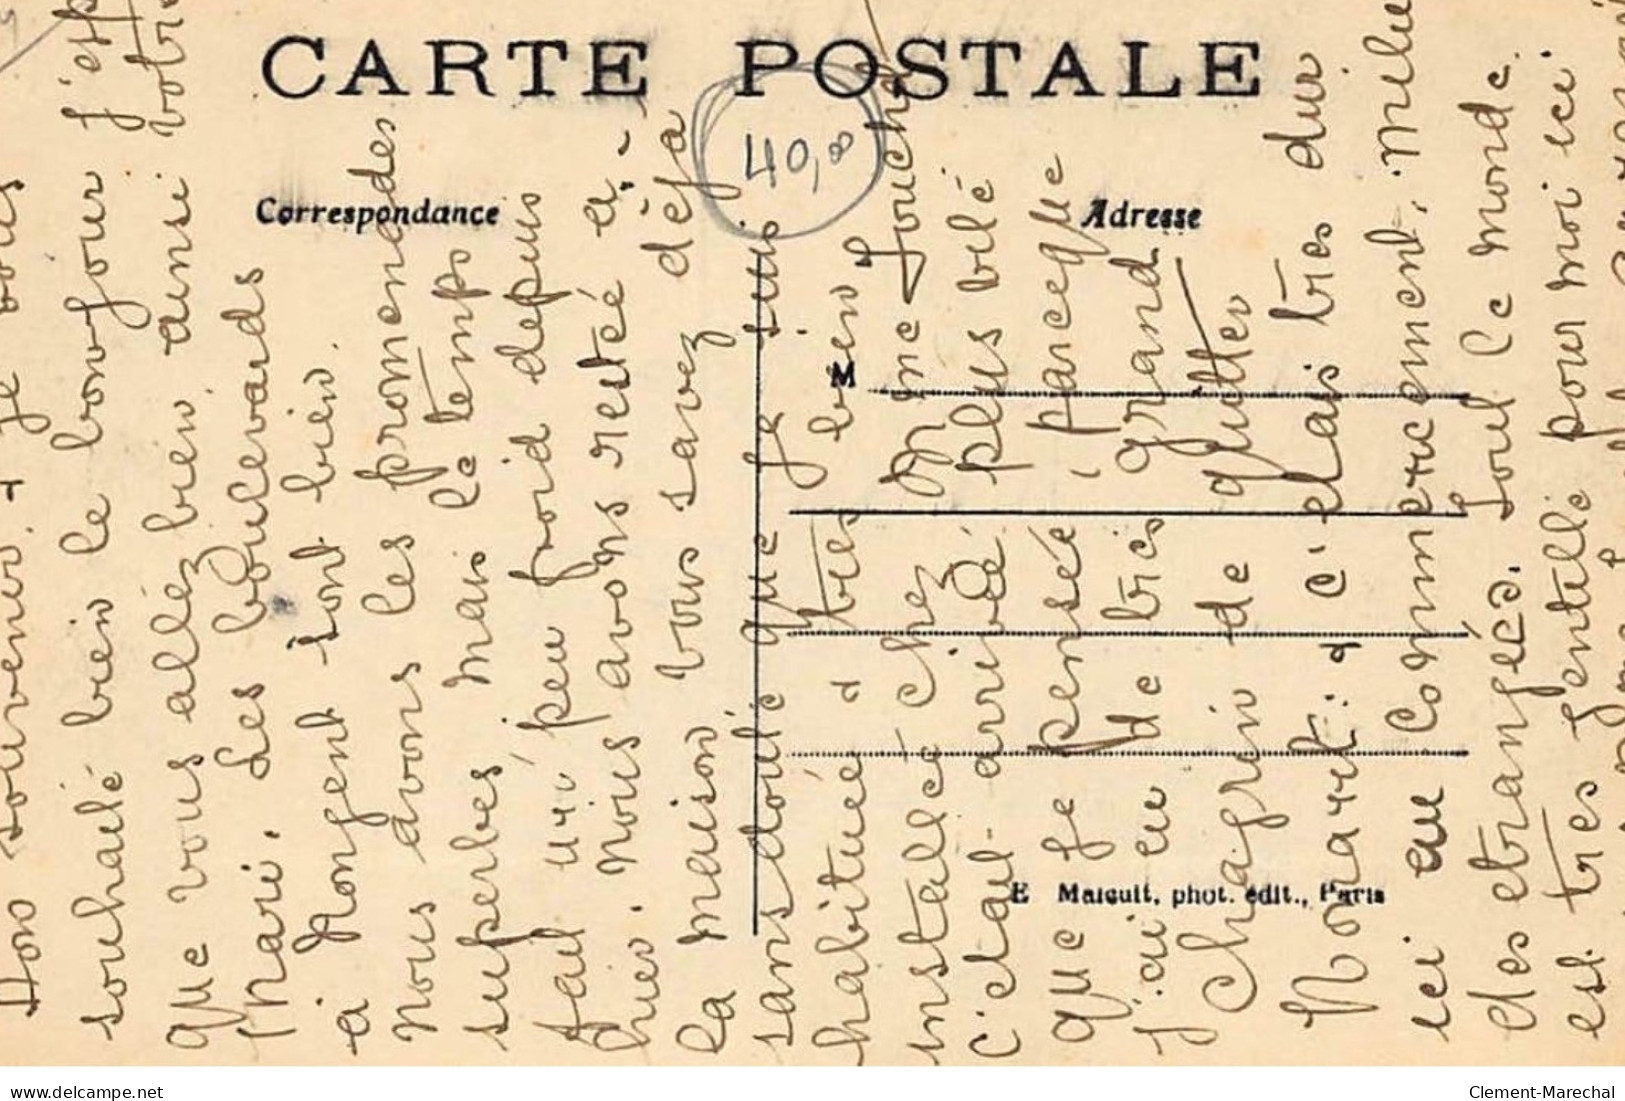 CARTE POSTALE
40,00
Correspondance
Adresse
M
E Malcuit, phot. édit., Paris
bon souvenir. + Je vous
souhaite bien le bonjour j'esp
que vous allez bien ainsi votre
Mari. Les boulevards
à Nongent sont bien.
nous avons les promenades
superbes mais le temps
fait un peu froid depuis
hier. Nous avons resté à
la maison vous savez déjà
sans doute que je suis
habituée & très bien
installée chez Mme Fouché
c'était arrivée plus vite
que je pensée parceque
j'ai eu de très grand
chagrin de quitter
Nonart. & c'étais très dur
ici au commencement, milieu
des étrangées. Tout le monde
est très gentille pour moi ici
delcampe.net
Clement-Marechal